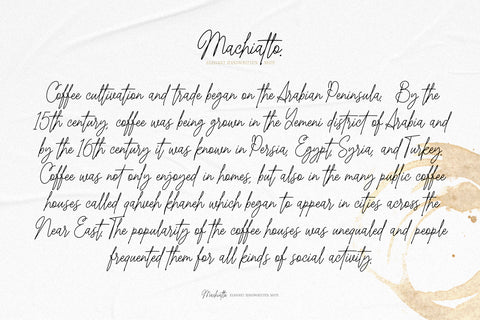 Machiatto.
ELEGANT HANDWRITTEN FONT
Coffee cultivation and trade began on the Arabian Peninsula. By the
15th century, coffee was being grown in the Yemeni district of Arabia and
by the 16th century it was known in Persia, Egypt, Syria, and Turkey.
Coffee was not only enjoyed in homes, but also in the many public coffee
houses called qahveh khaneh which began to appear in cities across the
Near East. The popularity of the coffee houses was unequaled and people
frequented them for all kinds of social activity.
Machiatto. ELEGANT HANDWRITTEN FONT